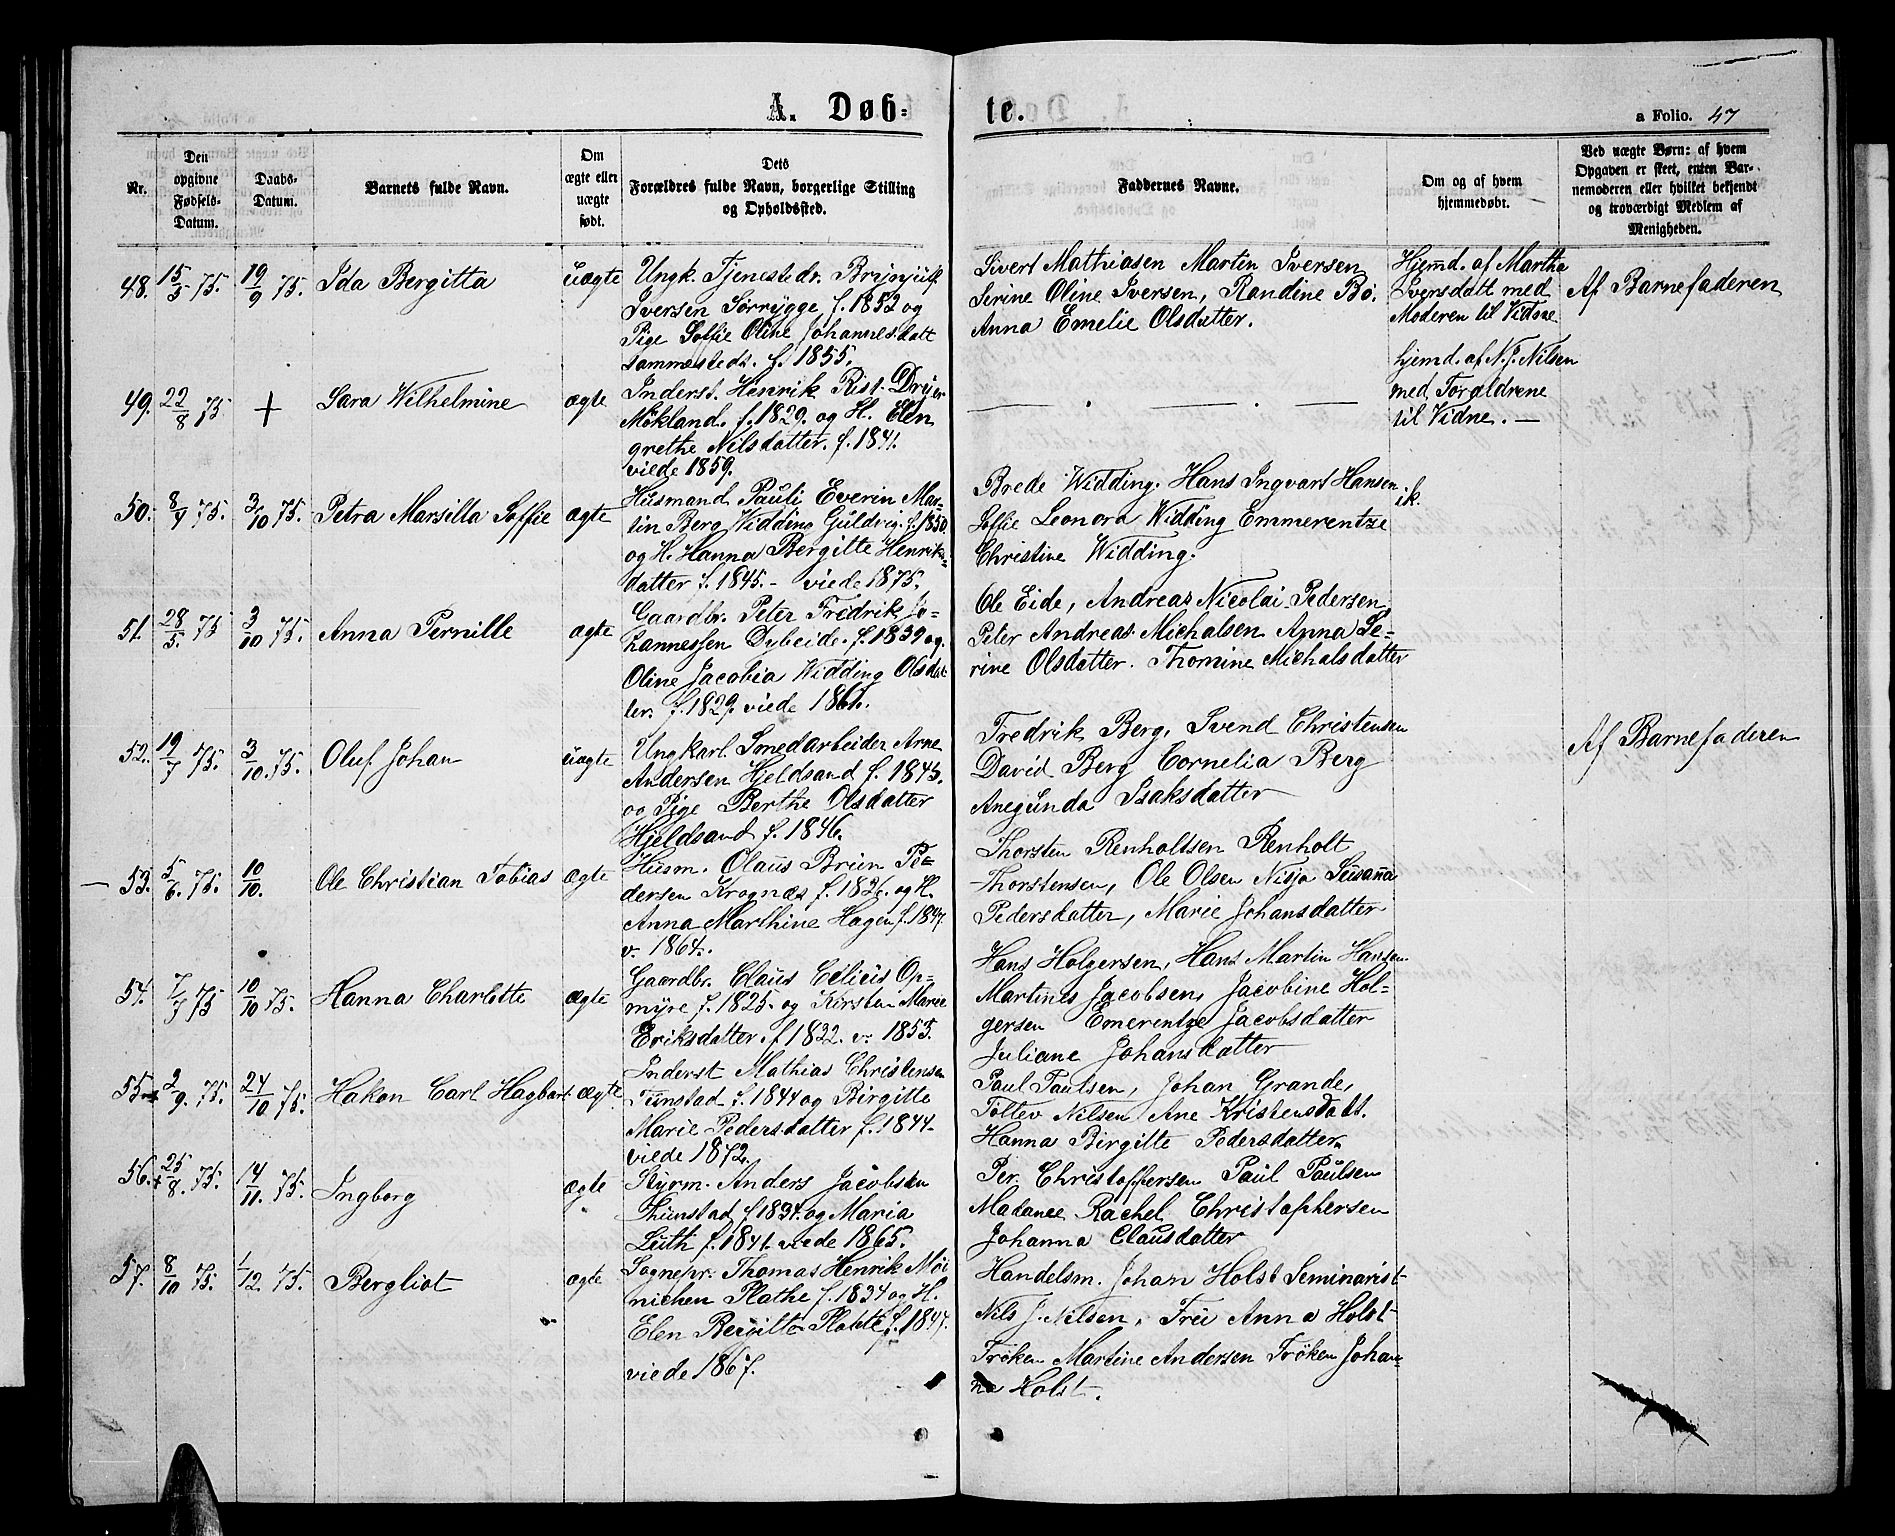 A. Døb-
te.
a Folio. 47
Nr.
Den opgivne Fødsels-Datum.
Daabs-Datum.
Barnets fulde Navn.
Om ægte eller uægte født.
Dets Forældres fulde Navn, borgerlige Stilling og Opholdssted.
Faddernes Navne.
Om og af hvem hjemmedøbt.
Ved uægte Børn: af hvem Opgaven er skeet, enten Barnemoderen eller hvilket bekjendt og troværdigt Medlem af Menigheden.
48. 15/5 75. 19/9 75. Ida Bergitta uægte
Ungk. Tjenestedr. Brynjulf
Iversen Sørrygge f. 1852 og
Pige Soffie Oline Johannesdatt
sammesteds. f. 1855.
Sivert Mathiasen Martin Iversen
Serine Oline Iversen, Randine Bø.
Anna Emelie Olsdatter.
Hjemd. af Martha
Iversdatt med
Moderen til Vidne
Af Barnefaderen
49. 22/8 75 + Sara Wilhelmine ægte
Inderst. Henrik Rist. Dreyer
Møkland. f. 1829. og H. Elen
grethe Nilsdatter. f. 1841.
viede 1859.
hjemd. af N. J. Nilsen
med Foraldrene
til Vidne. —
50. 8/4 75. 3/10 75. Petra Marsilla Soffie ægte
Husmand Pauli Everin Mar-
tin Berg Widding Guldvig f. 1850.
og H. Hanna Bergitte Henriks-
datter f. 1845. - viede 1875.
Brede Widding. Hans Ingvart Hansen
Soffie Leonora Widding Emmerentze
Christine Widding.
ik.
51. 28/5. 75 3/10 75. Anna Pernille ægte
Gaardbr. Peter Fredrik Jo-
hannessen Dybeide. f. 1839 og.
Oline Jacobia Widding Olsdat
ter. f. 1829. viede 1861.
Ole Eide, Andreas Nicolai Pedersen,
Peter Andreas Michalsen Anna Se-
rine Olsdatter. Thomine Michalsdatter
52. 19/7 75. 3/10. 75. Oluf Johan uægte
Ungkarl Smedarbeider Arne
Andersen Hjeldsand f. 1845.
og Pige Berthe Olsdatter
Hjeldsand f. 1846.
Fredrik Berg, Svend Christensen
David Berg Cornelia Berg
Anegunda Isaksdatter
Af Barnefaderen
53. 5/6. 75. 10/10. Ole Christian Tobias ægte
Husm. Olaus Brun Pe-
dersen Krognæs f. 1826. og H.
Anna Marthine Hagen f. 1847.
v. 1864.
Thorsten Renholtsen Renholt
Thorstensen, Ole Olsen Nisja Susanna
Pedersdatter, Marie Johansdatter
54. 7/7 75 10/10 75. Hanna Charlotte ægte
Gaardbr. Claus Edlius Op-
myre f. 1825. og Kirsten Marie
Eriksdatter. f 1832. v. 1853.
Hans Holgersen, Hans Martin Hansen
Martines Jacobsen, Jacobine Hol-
gersen Emerentze Jacobsdatter
Juliane Johansdatter
55. 2/9. 75. 24/10 75. Hakon Carl Hagbart ægte
Inderst Mathias Christensen
Tunstad f. 1844 og Birgitte
Marie Pedersdatter f. 1844.
viede 1872.
Paul Paulsen, Johan Grande,
Tollev Nilsen Ane Kristensdatt.
Hanna Birgitte Pedersdatter.
56. 25/8. 75. 14/11. 75. Ingborg ægte
Styrm. Anders Jacobsen
Thunstad f 1834. og Maria
Luth f. 1841. viede 1865.
Per. Christoffersen Paul Paulsen
Madamee Rachel Christophersen
Johanna Clausdatter
57. 8/10 75. 1/12. 75. Bergliot ægte
Sognepr. Thomas Henrik Møi
nichen Plathe f. 1834 og H.
Elen Bergitte Plathe f. 1847.
viede 1867.
Handelsm. Johan Holst Seminarist
Nils J. Nilsen, Frü Anna Holst
Frøken Martine Andersen Frøken Johan-
na Holst.